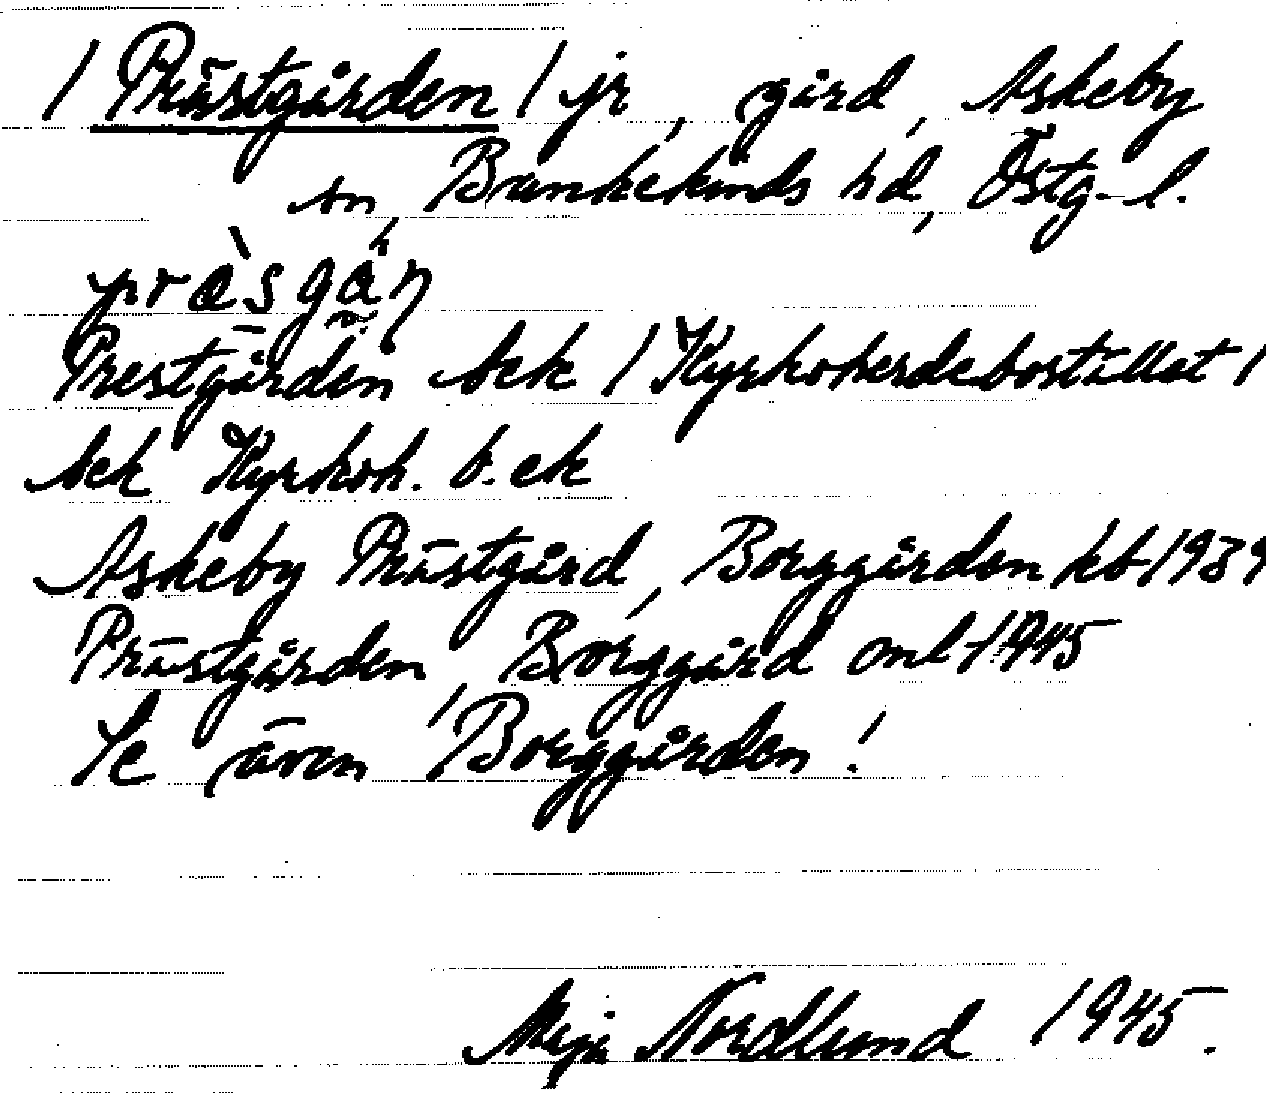 / Prästgården / jr, gård, Askeby
sn, Bankekinds hd, Östg-l.
Prestgården bek / Kyrkoherdebostället /
bek Kyrkoh. b. ek
Askeby Prästgård, Borggården kb 1939
Prästgården, Borggård oml 1945
Se även Borggården!
Nordlund 1945.